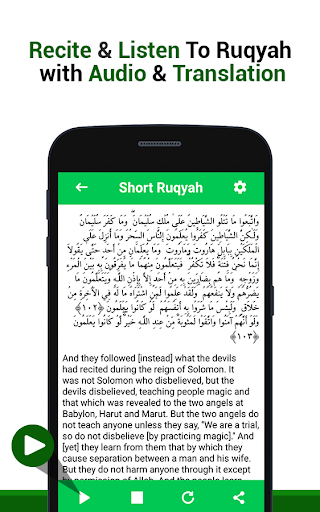 Recite & Listen To Ruqyah
with Audio & Translation
Short Ruqyah
وَاتَّبَعُوا مَا تَتْلُو الشَّيَاطِينُ عَلَىٰ مُلْكِ سُلَيْمَانَ ۖ وَمَا كَفَرَ سُلَيْمَانُ
وَلَٰكِنَّ الشَّيَاطِينَ كَفَرُوا يُعَلِّمُونَ النَّاسَ السِّحْرَ وَمَا أُنْزِلَ عَلَى
الْمَلَكَيْنِ بِبَابِلَ هَارُوتَ وَمَارُوتَ ۚ وَمَا يُعَلِّمَانِ مِنْ أَحَدٍ حَتَّىٰ يَقُولَا
إِنَّمَا نَحْنُ فِتْنَةٌ فَلَا تَكْفُرْ ۖ فَيَتَعَلَّمُونَ مِنْهُمَا مَا يُفَرِّقُونَ بِهِ بَيْنَ الْمَرْءِ
وَزَوْجِهِ ۚ وَمَا هُمْ بِضَارِّينَ بِهِ مِنْ أَحَدٍ إِلَّا بِإِذْنِ اللَّهِ ۚ وَيَتَعَلَّمُونَ مَا
يَضُرُّهُمْ وَلَا يَنْفَعُهُمْ ۚ وَلَقَدْ عَلِمُوا لَمَنِ اشْتَرَاهُ مَا لَهُ فِي الْآخِرَةِ مِنْ
خَلَاقٍ ۚ وَلَبِئْسَ مَا شَرَوْا بِهِ أَنْفُسَهُمْ ۚ لَوْ كَانُوا يَعْلَمُونَ ﴿١٠٢﴾
وَلَوْ أَنَّهُمْ آمَنُوا وَاتَّقَوْا لَمَثُوبَةٌ مِنْ عِنْدِ اللَّهِ خَيْرٌ ۖ لَوْ كَانُوا يَعْلَمُونَ
﴿١٠٣﴾
And they followed [instead] what the devils
had recited during the reign of Solomon. It
was not Solomon who disbelieved, but the
devils disbelieved, teaching people magic and
that which was revealed to the two angels at
Babylon, Harut and Marut. But the two angels do
not teach anyone unless they say, "We are a trial,
so do not disbelieve [by practicing magic]." And
[yet] they learn from them that by which they
cause separation between a man and his wife.
But they do not harm anyone through it except
by permission of Allah. And the people learn